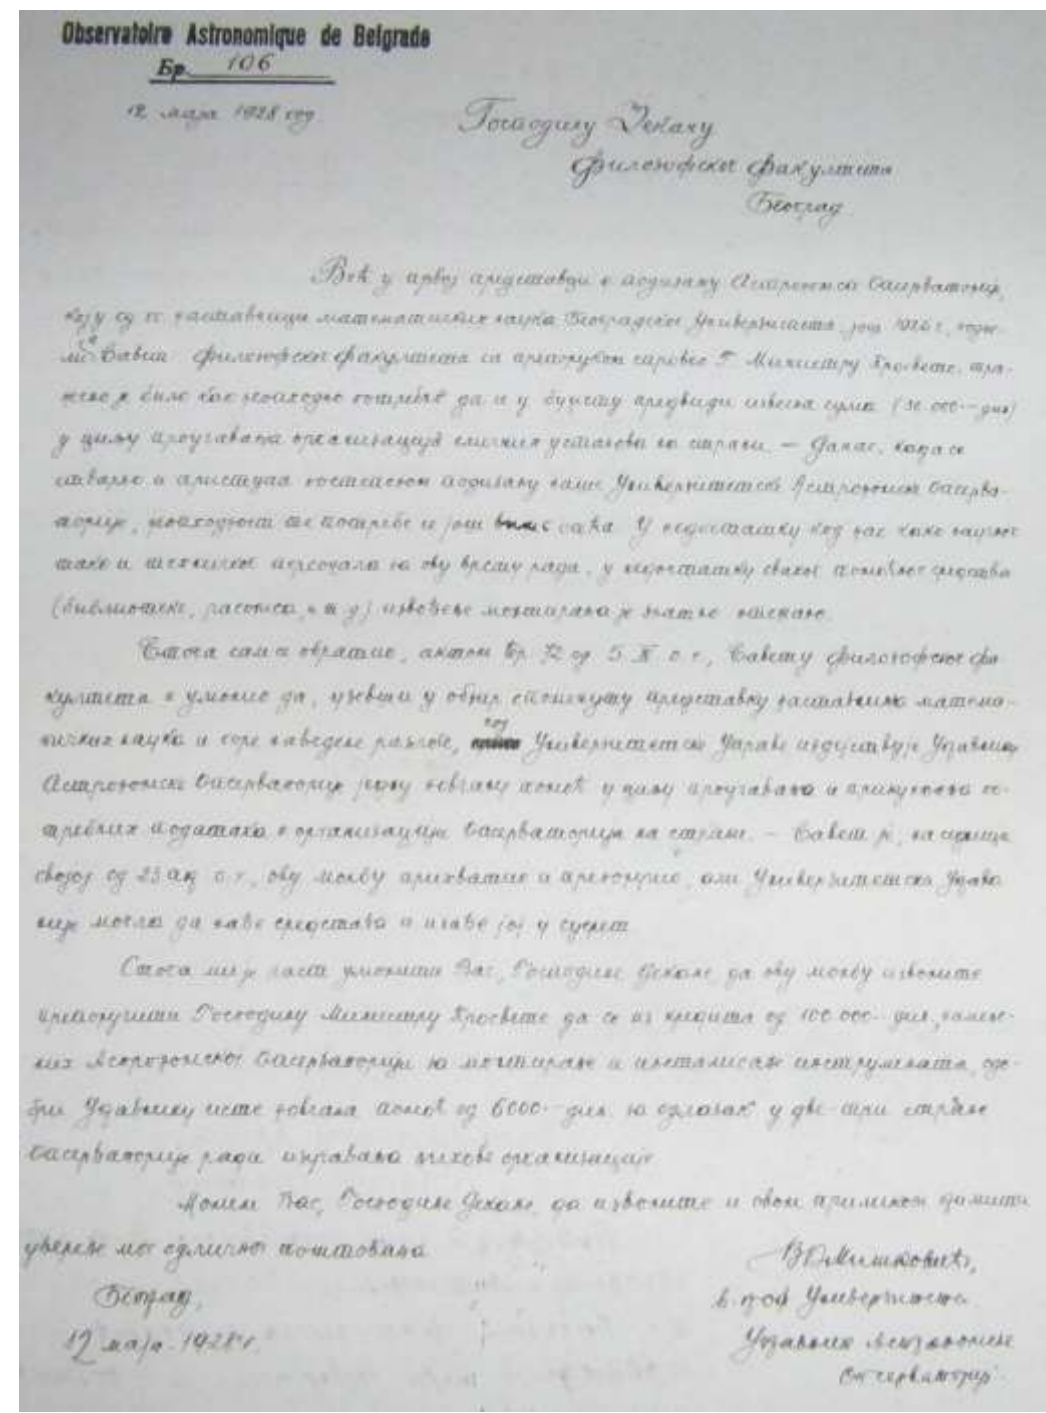 Observatoire Astronomique de Belgrade
Бр. 106
12 маја 1928 год.
Господину Декану
Филозофског факултета
Београд
Већ у првој представци о подизању Астрономске Опсерваторије,
коју су наставници математичких наука Београдског Универзитета, још 1926 г.
Савет Филозофског факултета са препоруком спровео Г. Министру Просвете, тра-
жено је било као неопходно потребно да се у буџету предвиди извесна сума (30.000.- дин)
у циљу проучавања организација сличних установа на страни. — Данас, када се
стварно и приступа постепеном подизању наше Универзитетске Астрономске Опсерва-
торије, неопходност те потребе је још већа. У недостатку код нас како научног
тако и техничког персонала за ову врсту рада, у недостатку сваког помоћног средства
(библиотеке, часописа, и т.д) извођење монтирања је знатно отежано.
Стога сам се обратио, актом бр. 72 од 5. о.г., Савету Филозофског фа-
култета и умолио да, узевши у обзир споменуту представку наставника матема-
тичких наука и горе наведене разлоге, код Универзитетске Управе издејствује Управнику
Астрономске Опсерваторије једну новчану помоћ у циљу проучавања и прикупљања по-
требних података о организацији Опсерваторија на страни. — Савет је, на седници
својој од 23 о.г., ову молбу прихватио и препоручио, али Универзитетска Управа
није могла да нађе средстава и изађе јој у сусрет.
Стога ми је част умолити Вас, Господине Декане, да ову молбу изволите
препоручити Господину Министру Просвете да се из кредита од 100.000.- дин, намење-
них Астрономској Опсерваторији за монтирање и инсталисање инструмената, одо-
бри Управнику исте новчана помоћ од 6000.- дин. за одлазак у две-три стране
Опсерваторије ради изучавања њихове организације.
Молим Вас, Господине Декане, да изволите и овом приликом примити
уверење мог одличног поштовања.
Београд,
12 маја 1928 г.
В В Мишковић,
в. проф Универзитета
Управник Астрономске
Опсерваторије